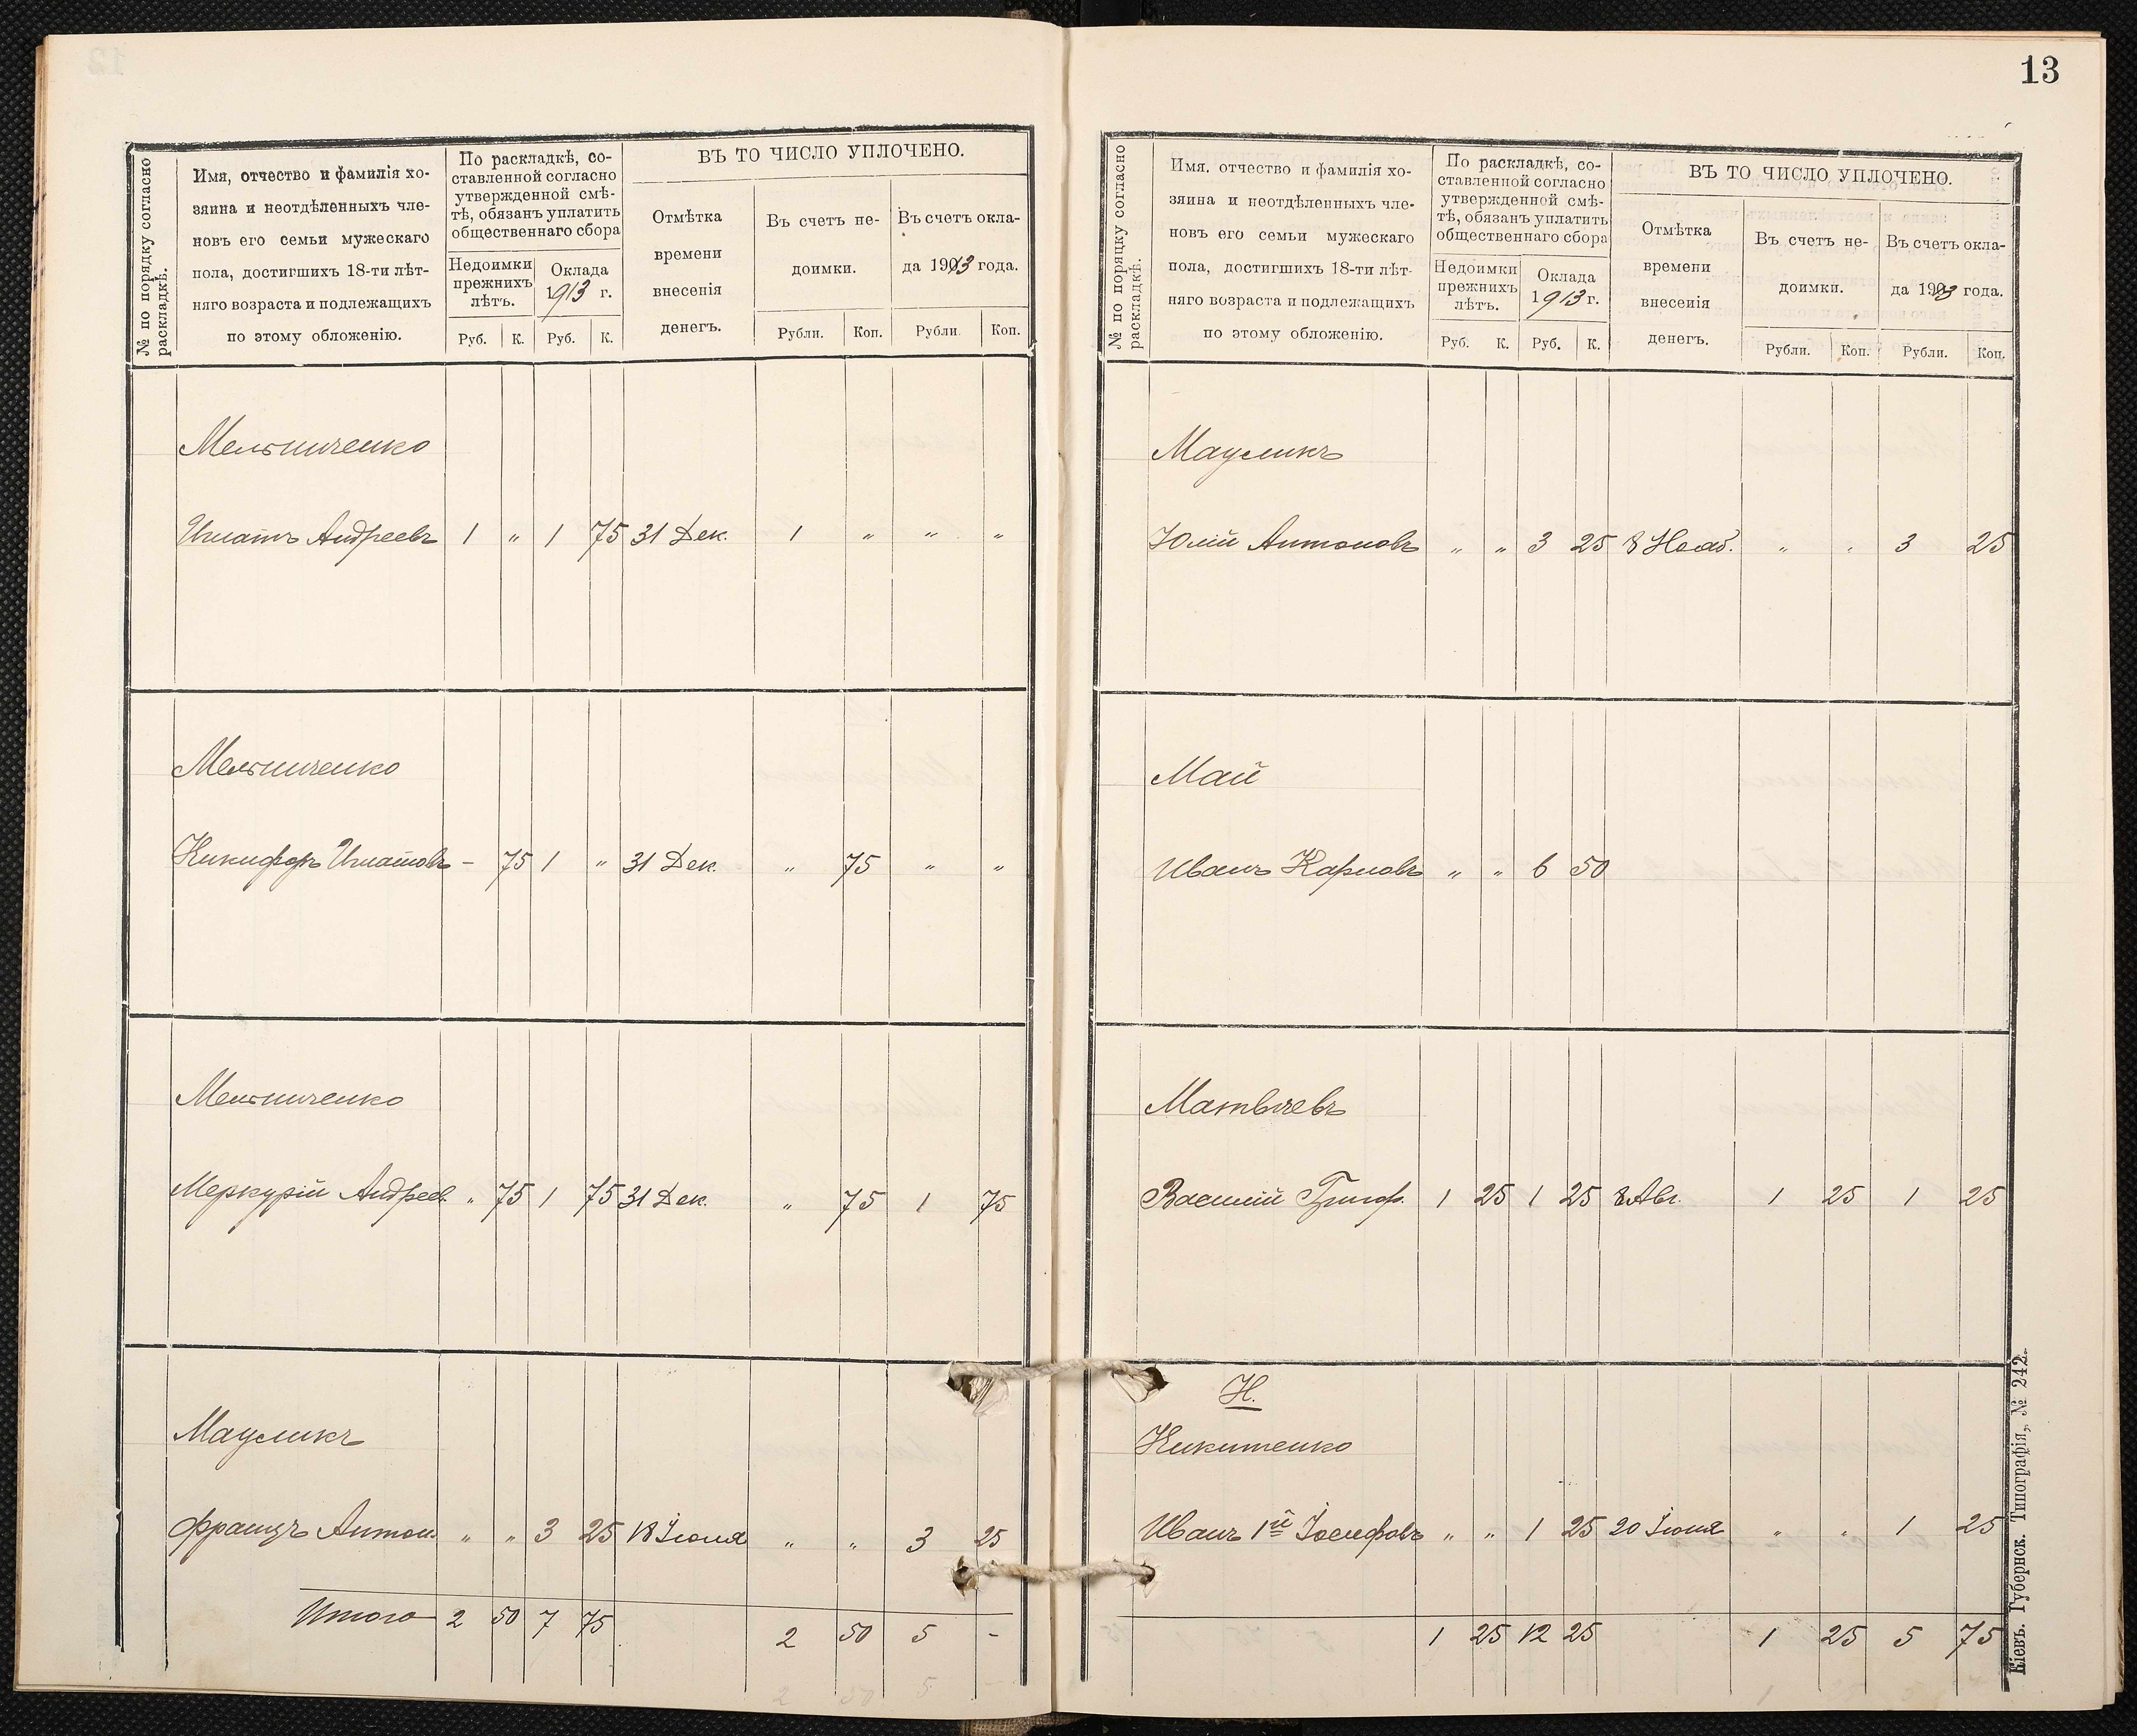 13
№ по порядку согласно раскладкѣ.
Имя, отчество и фамилія хо-
зяина и неотдѣленныхъ чле-
новъ его семьи мужескаго
пола, достигшихъ 18-ти лѣт-
няго возраста и подлежащихъ
по этому обложенію.
По раскладкѣ, со-
ставленной согласно
утвержденной смѣ-
тѣ, обязанъ уплатить
общественнаго сбора
Недоимки
прежнихъ
лѣтъ.
Оклада
1913 г.
Руб. К. Руб. К.
ВЪ ТО ЧИСЛО УПЛОЧЕНО.
Отмѣтка
времени
внесенія
денегъ.
Въ счетъ не-
доимки.
Въ счетъ окла-
да 1913 года.
Рубли. Коп. Рубли. Коп.
Мельниченко
Игнатъ Андреевъ 1 " 1 75 31 Дек. 1 " " "
Мельниченко
Никифоръ Игнатовъ - 75 1 " 31 Дек. " 75 " "
Мельниченко
Меркурій Андреев. " 75 1 75 31 Дек. " 75 1 75
Мауликъ
Францъ Антон. " " 3 25 18 Іюля " " 3 25
Итого 2 50 7 75 2 50 5 -
№ по порядку согласно раскладкѣ.
Имя, отчество и фамилія хо-
зяина и неотдѣленныхъ чле-
новъ его семьи мужескаго
пола, достигшихъ 18-ти лѣт-
няго возраста и подлежащихъ
по этому обложенію.
По раскладкѣ, со-
ставленной согласно
утвержденной смѣ-
тѣ, обязанъ уплатить
общественнаго сбора
Недоимки
прежнихъ
лѣтъ.
Оклада
1913 г.
Руб. К. Руб. К.
ВЪ ТО ЧИСЛО УПЛОЧЕНО.
Отмѣтка
времени
внесенія
денегъ.
Въ счетъ не-
доимки.
Въ счетъ окла-
да 1913 года.
Рубли. Коп. Рубли. Коп.
Мауликъ
Юлій Антоновъ " " 3 25 8 Нояб. " " 3 25
Май
Иванъ Карповъ " " 6 50
Матвѣевъ
Василій Григор. 1 25 1 25 8 Авг. 1 25 1 25
Н.
Никитенко
Иванъ 1й Іосифовъ " " 1 25 20 Іюня " " 1 25
1 25 12 25 1 25 5 75
Кіевъ. Губернск. Типографія, № 242.